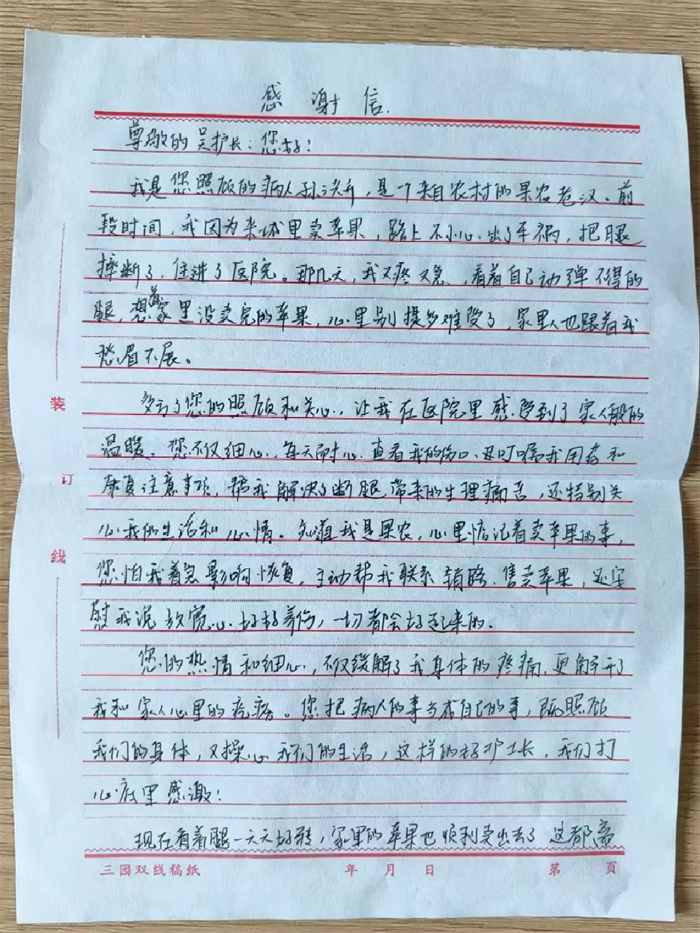 感谢信.
尊敬的吴护长:您好!
我是您照顾的病人孙，是一个来自农村的果农老汉。前
段时间，我因为来城里卖苹果，路上不小心出了车祸，把腿
摔断了，住进了医院。那几天，我又疼又急，看着自己动弹不得的
腿，想着家里没卖完的苹果，心里别提多难受了，家里人也跟着我
愁眉不展。
多亏了您的照顾和关心，让我在医院里感受到了家人般的
温暖。您不仅细心，每天耐心查看我的伤口，叮嘱我用药和
康复注意事项，帮我解决了断腿带来的生理痛苦，还特别关
心我的生活和心情。知道我是果农，心里惦记着卖苹果的事，
您怕我着急影响恢复，主动帮我联系销路售卖苹果，还安
慰我说放宽心好好养伤，一切都会好起来的。
您的热情和细心，不仅缓解了我身体的疼痛，更解开了
我和家人心里的疙瘩。您把病人的事当成自己的事，既照顾
我们的身体，又操心我们的生活，这样的好护士长，我们打
心底里感激!
现在看着腿一天天好转，家里的苹果也顺利卖出去了这都
装
订
线
三园双线稿纸
年 月 日
第 页